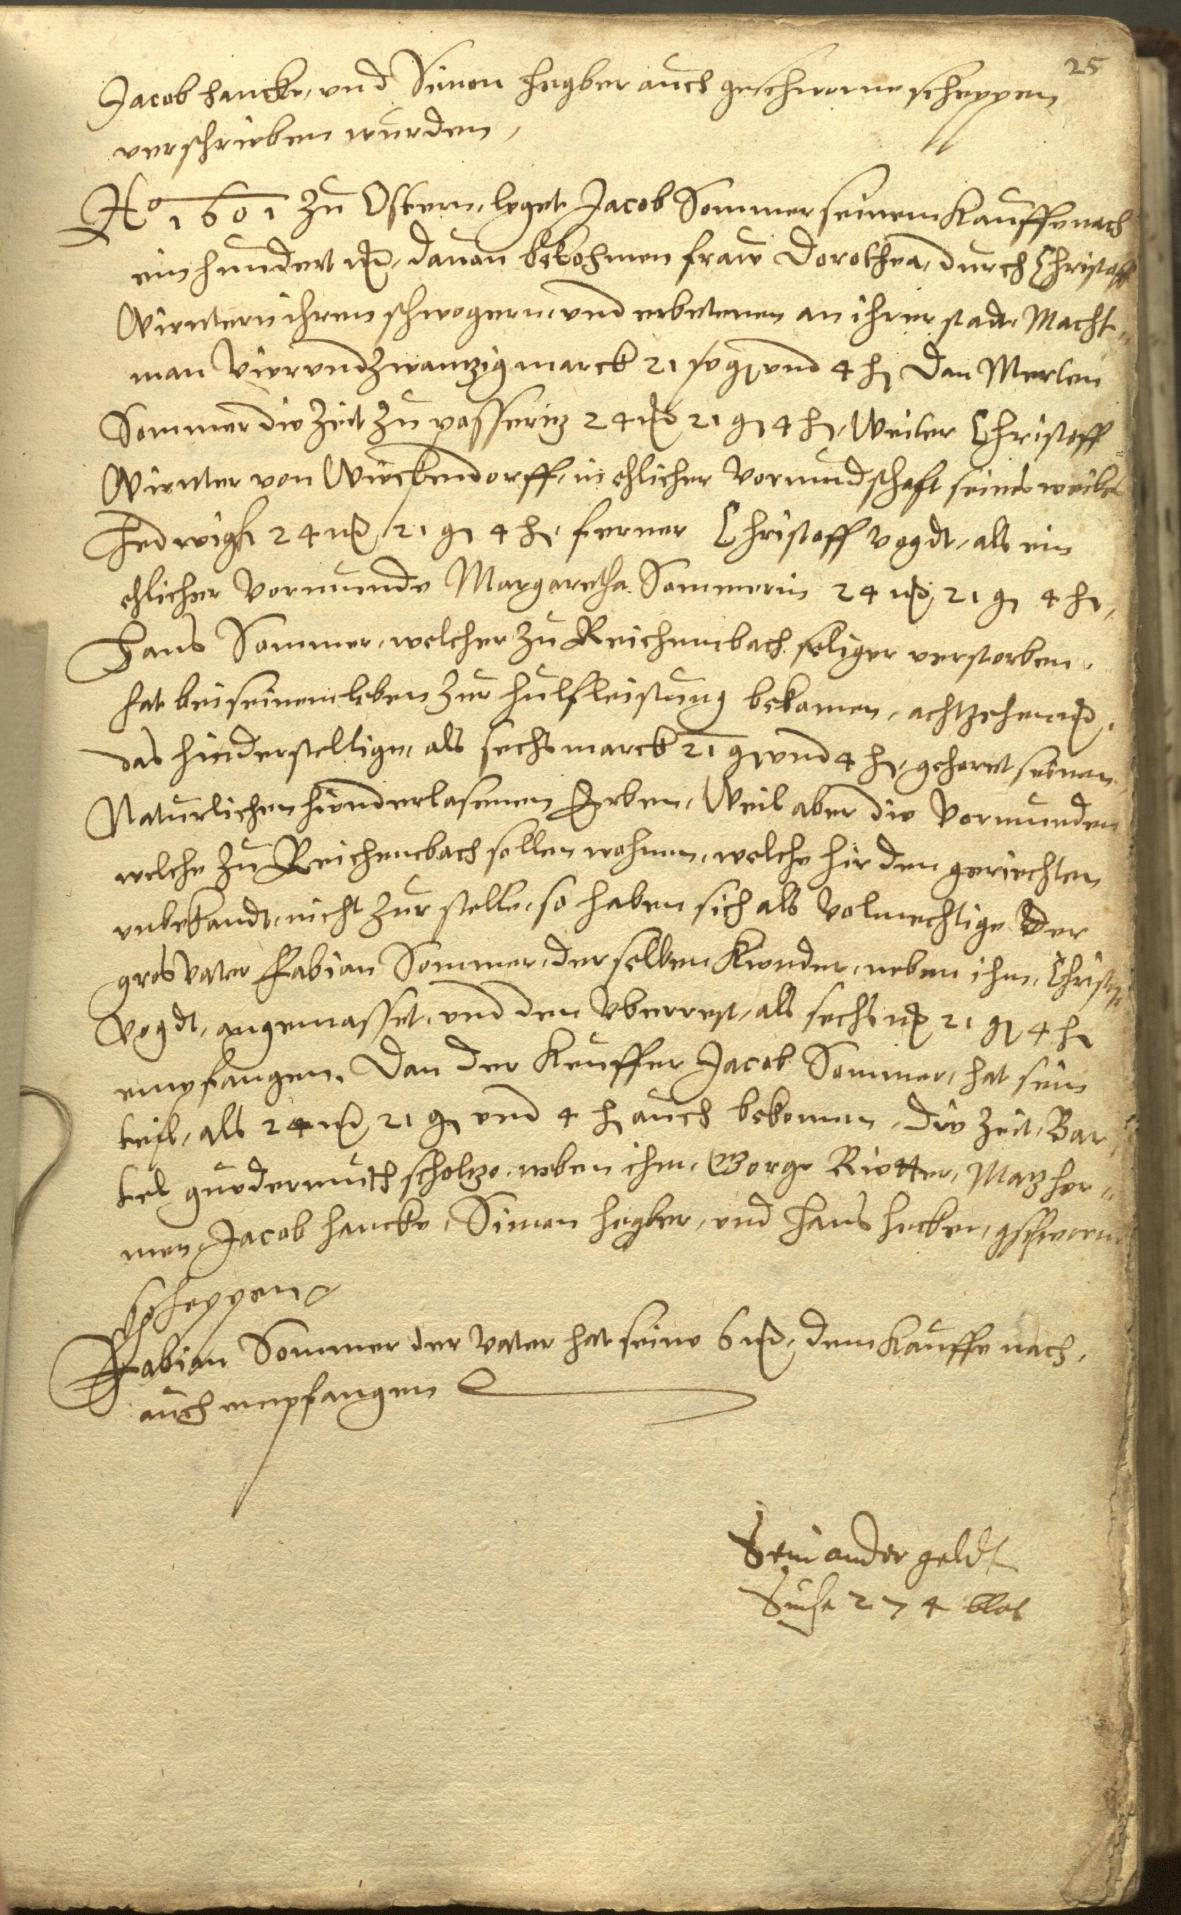 25
Jacob hancke, und Simon hegber auch geschworne scheppen
verschrieben wurden,
Ao 1601 zu Ostern, leget Jacob Sommer seinem Kauffe nach
ein hundert mk, dauon bekohmen fraw Dorothea, durch Christoff
Wintern ihren schwogern, und erbetenen an ihrer stadt, Macht-
man Vier und Zwantzig marck 21 sg und 4 h, Dan Merten
Sommer die Zeit zu passeritz 24 mk 21 g 4 h, Weiter Christoff
Winter von Wirckendorff, in ehlicher Vormundschafft seines weibes
Hedwigh 24 mk 21 g 4 h, ferner Christoff Vogdt, als ein
ehlicher Vormunde Margaretha Sommerin 24 mk, 21 g 4 h,
Hans Sommer, welcher zu Reichenbach seliger verstorben,
hat bei seinem leben zur hulfleistung bekamen, achtzehen mk,
das hinderstellige, als sechs marck 21 g und 4 h, gehoret seinen
Naturlichen hinderlasenen Erben, Weil aber die Vormunden
welche zu Reichenbach sollen wohnen, welche hir den geriechten
unbekandt, nicht zur stelle, so haben sich als Volmechtige der
gros Vater Fabian Sommer, derselben Kinder, neben ihm, Christoff
Vogdt, angemasset, und den Uberrest, als sechs mk 21 g 4 h
empfangen. Dan der Keuffer Jacob Sommer, hat sein
teil, als 24 mk 21 g und 4 h auch bekomen, die Zeit, Bar-
tel guedermuth scholtze, neben ihm, George Ritter, Matz her-
men, Jacob hancke, Simon hegber, und Hans hecker, gschworne
scheppen
Fabian Sommer der Vater hat seine 6 mk, dem Kauffe nach,
auch empfangen
Sein ander geldt
Suche 274 blat